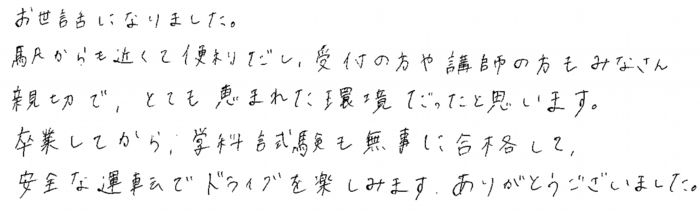 お世話になりました。
駅からも近くて便利だし、受付の方や講師の方もみなさん
親切で、とても恵まれた環境だったと思います。
卒業してから、学科試験も無事に合格して、
安全な運転でドライブを楽しみます。ありがとうございました。